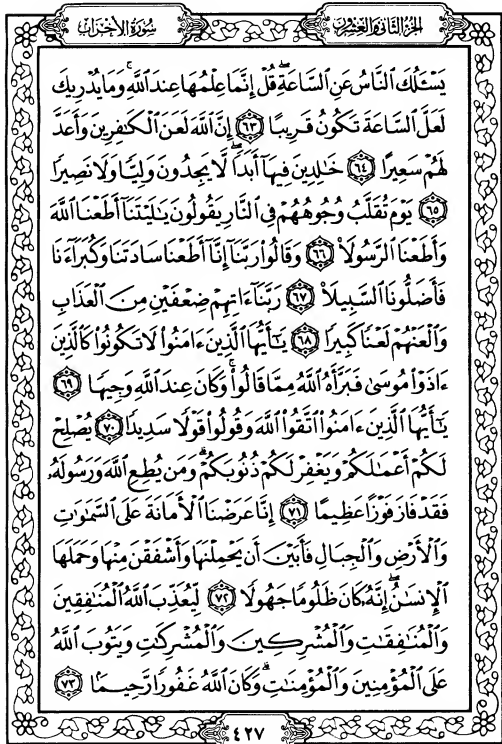 سُورَةُ الأَحْزَابِ
الجُزْءُ الثَّانِي وَالعِشْرُونَ
يَسْـَٔلُكَ ٱلنَّاسُ عَنِ ٱلسَّاعَةِۖ قُلْ إِنَّمَا عِلْمُهَا عِندَ ٱللَّهِۚ وَمَا يُدْرِيكَ
لَعَلَّ ٱلسَّاعَةَ تَكُونُ قَرِيبًا ۝٦٣ إِنَّ ٱللَّهَ لَعَنَ ٱلْكَٰفِرِينَ وَأَعَدَّ
لَهُمْ سَعِيرًا ۝٦٤ خَٰلِدِينَ فِيهَآ أَبَدًاۖ لَّا يَجِدُونَ وَلِيًّا وَلَا نَصِيرًا
۝٦٥ يَوْمَ تُقَلَّبُ وُجُوهُهُمْ فِى ٱلنَّارِ يَقُولُونَ يَٰلَيْتَنَآ أَطَعْنَا ٱللَّهَ
وَأَطَعْنَا ٱلرَّسُولَا۠ ۝٦٦ وَقَالُوا۟ رَبَّنَآ إِنَّآ أَطَعْنَا سَادَتَنَا وَكُبَرَآءَنَا
فَأَضَلُّونَا ٱلسَّبِيلَا۠ ۝٦٧ رَبَّنَآ ءَاتِهِمْ ضِعْفَيْنِ مِنَ ٱلْعَذَابِ
وَٱلْعَنْهُمْ لَعْنًا كَبِيرًا ۝٦٨ يَٰٓأَيُّهَا ٱلَّذِينَ ءَامَنُوا۟ لَا تَكُونُوا۟ كَٱلَّذِينَ
ءَاذَوْا۟ مُوسَىٰ فَبَرَّأَهُ ٱللَّهُ مِمَّا قَالُوا۟ۚ وَكَانَ عِندَ ٱللَّهِ وَجِيهًا ۝٦٩
يَٰٓأَيُّهَا ٱلَّذِينَ ءَامَنُوا۟ ٱتَّقُوا۟ ٱللَّهَ وَقُولُوا۟ قَوْلًا سَدِيدًا ۝٧٠ يُصْلِحْ
لَكُمْ أَعْمَٰلَكُمْ وَيَغْفِرْ لَكُمْ ذُنُوبَكُمْۗ وَمَن يُطِعِ ٱللَّهَ وَرَسُولَهُۥ
فَقَدْ فَازَ فَوْزًا عَظِيمًا ۝٧١ إِنَّا عَرَضْنَا ٱلْأَمَانَةَ عَلَى ٱلسَّمَٰوَٰتِ
وَٱلْأَرْضِ وَٱلْجِبَالِ فَأَبَيْنَ أَن يَحْمِلْنَهَا وَأَشْفَقْنَ مِنْهَا وَحَمَلَهَا
ٱلْإِنسَٰنُۖ إِنَّهُۥ كَانَ ظَلُومًا جَهُولًا ۝٧٢ لِّيُعَذِّبَ ٱللَّهُ ٱلْمُنَٰفِقِينَ
وَٱلْمُنَٰفِقَٰتِ وَٱلْمُشْرِكِينَ وَٱلْمُشْرِكَٰتِ وَيَتُوبَ ٱللَّهُ
عَلَى ٱلْمُؤْمِنِينَ وَٱلْمُؤْمِنَٰتِۗ وَكَانَ ٱللَّهُ غَفُورًا رَّحِيمًا ۝٧٣
٤٢٧